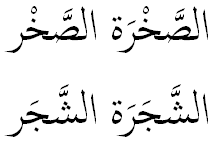 الصَّخْرَة الصَّخْر
الشَّجَرَة الشَّجَر